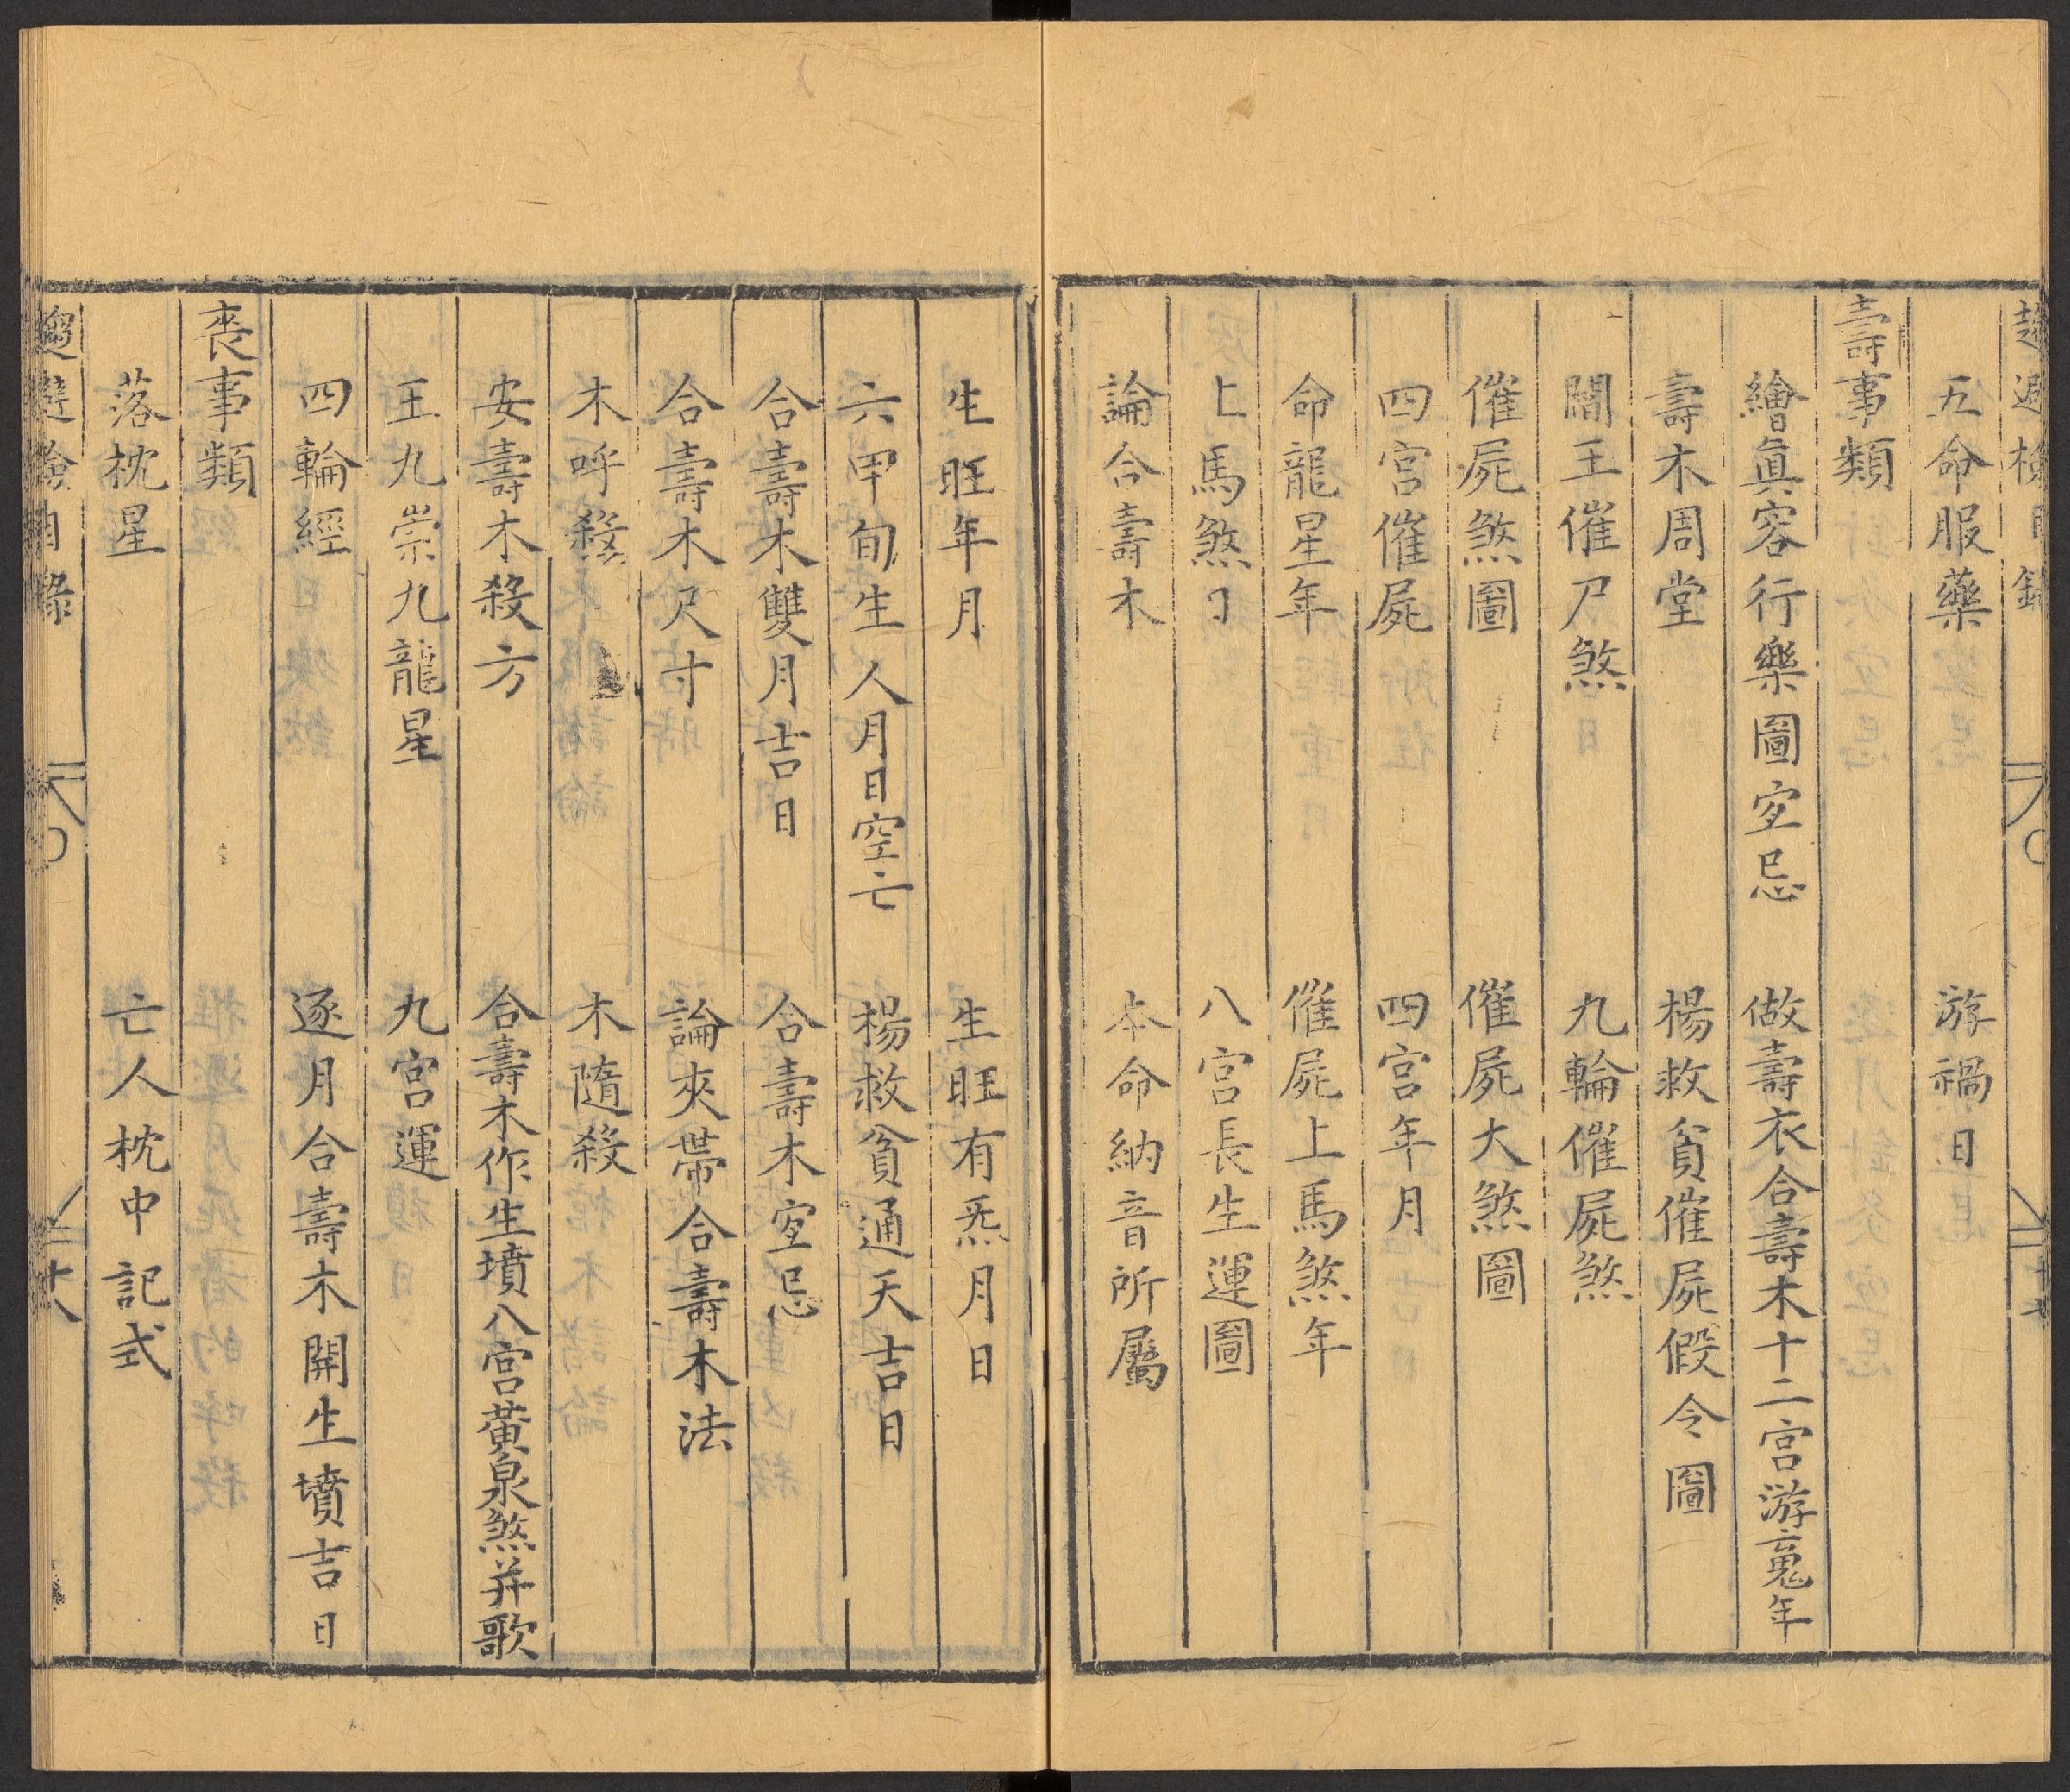 趨避檢目錄 十七
五命服藥 游禍日
壽事類
繪眞容行樂圖宜忌 做壽衣合壽木十二宮游䰟年
壽木周堂 楊救貧催屍假令圖
閻王催尸煞 九輪催屍煞
催屍煞圖 催屍大煞圖
四宮催屍 四宮年月
命龍星年 催屍上馬煞年
上馬煞 八宮長生運圖
論合壽木 本命納音所屬
生旺年月 生旺有炁月日
六甲旬生人月日空亡 楊救貧通天吉日
合壽木雙月吉日 合壽木宜忌
合壽木尺寸 論夾帶合壽木法
木呼殺 木隨殺
安壽木殺方 合壽木作生墳八宮黃泉煞并歌
王九崇九龍星 九宮運
四輪經 逐月合壽木開生墳吉日
喪事類
落枕星 亡人枕中記式
趨避檢目錄 十八